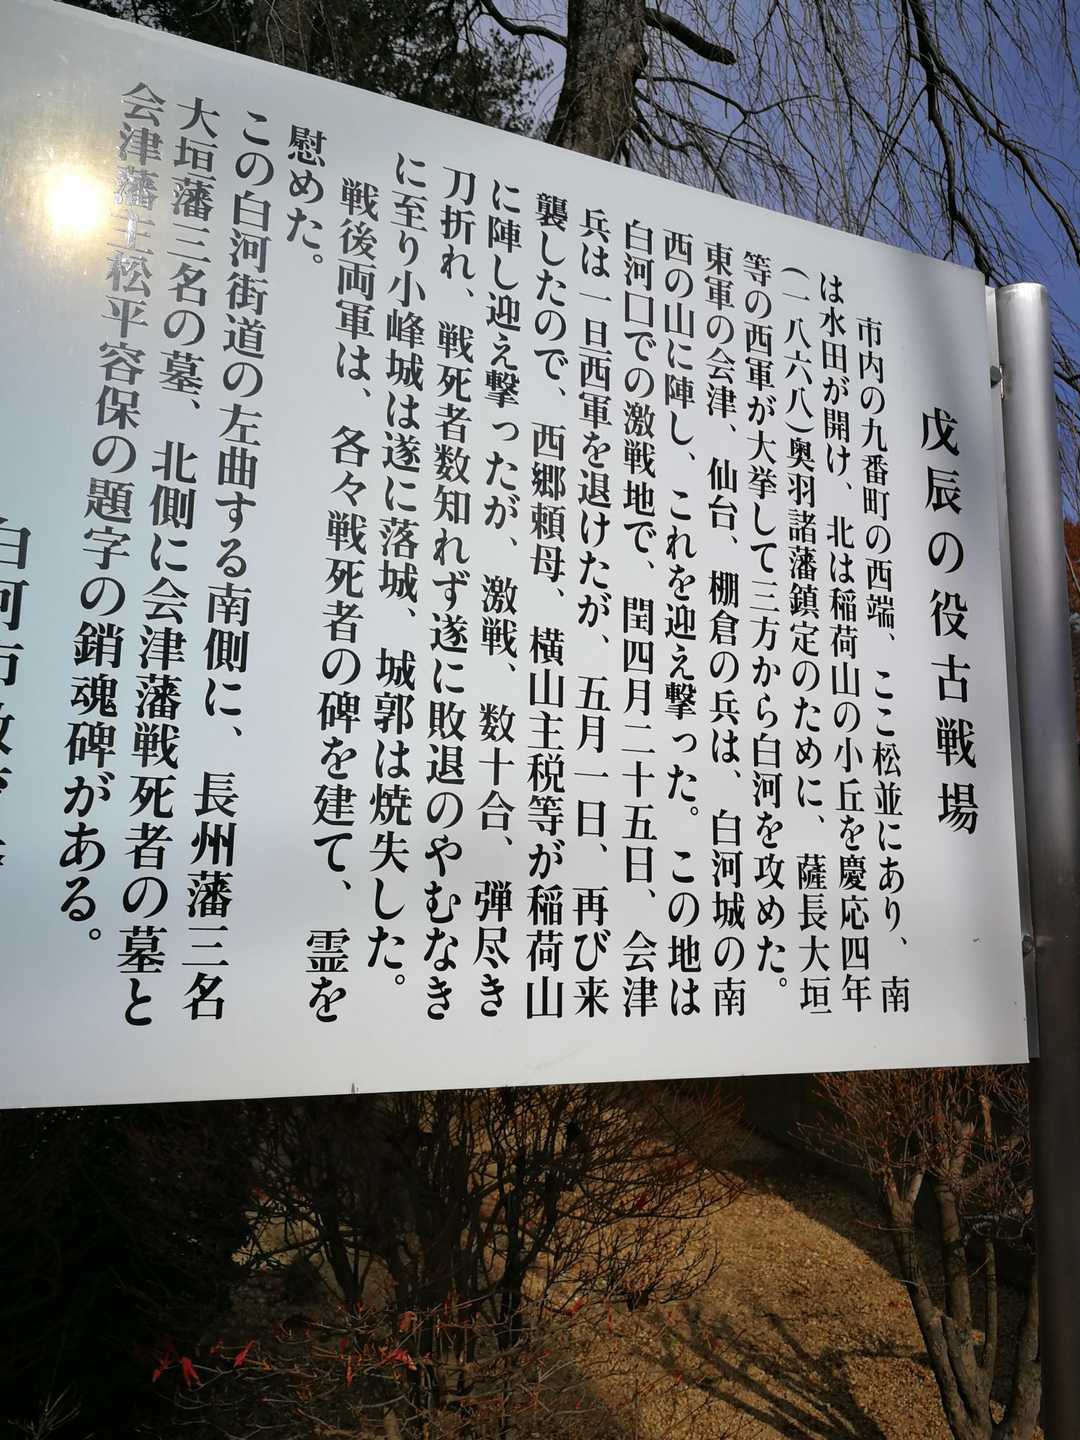 戊辰の役古戦場
市内の九番町の西端、ここ松並にあり、南
は水田が開け、北は稲荷山の小丘を慶応四年
(一八六八)奥羽諸藩鎮定のために、薩長大垣
等の西軍が大挙して三方から白河を攻めた。
東軍の会津、仙台、棚倉の兵は、白河城の南
西の山に陣し、これを迎え撃った。この地は
白河口での激戦地で、閏四月二十五日、会津
兵は一日西軍を退けたが、五月一日、再び来
襲したので、西郷頼母、横山主税等が稲荷山
に陣し迎え撃ったが、激戦、数十合、弾尽き
刀折れ、戦死者数知れず遂に敗退のやむなき
に至り小峰城は遂に落城、城郭は焼失した。
戦後両軍は、各々戦死者の碑を建て、霊を
慰めた。
この白河街道の左曲する南側に、長州藩三名
大垣藩三名の墓、北側に会津藩戦死者の墓と
会津藩主松平容保の題字の銷魂碑がある。
白河市教